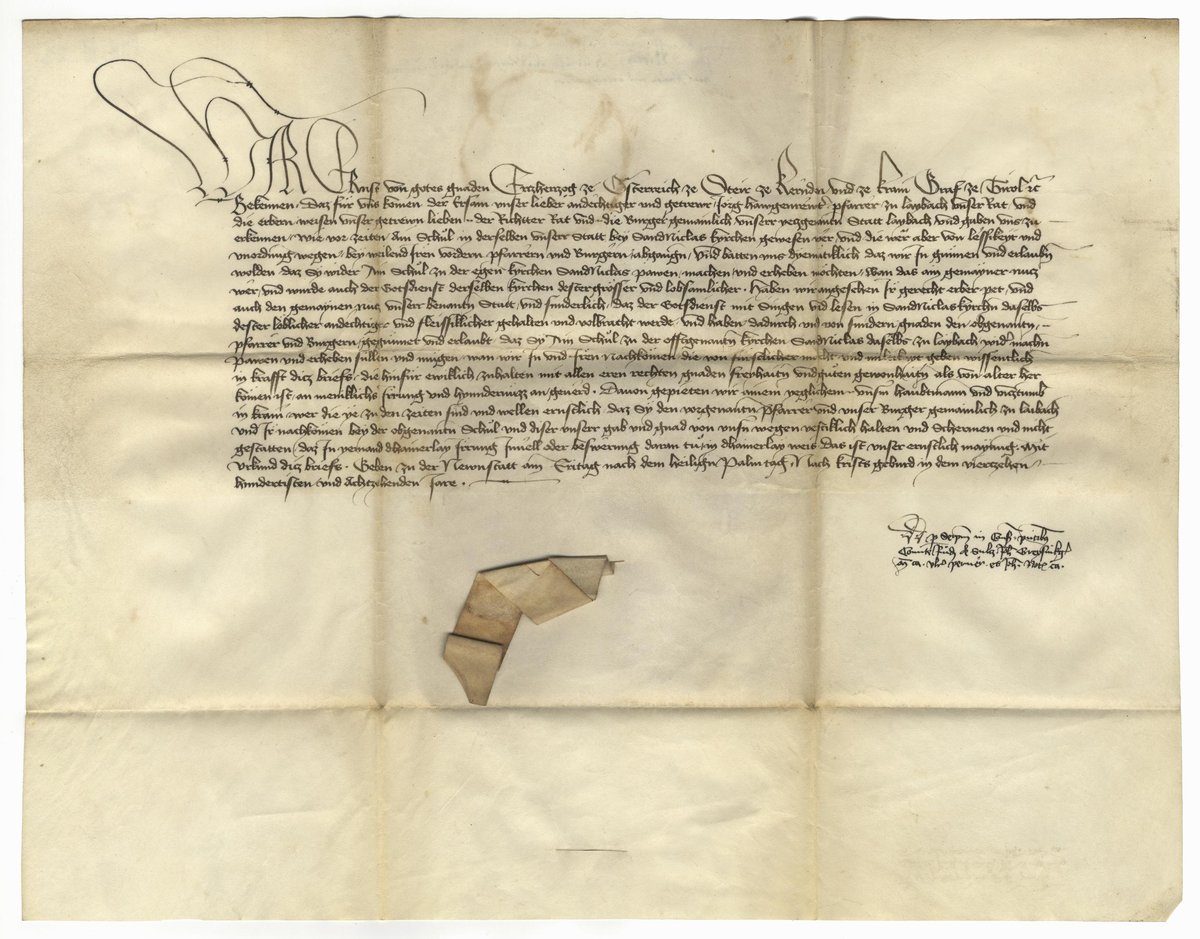 WIR Ernst von gotes gnaden Ertzherzog ze Österreich ze Steir ze Kernden und ze krain Graf ze Tirol etc
Bekennen Daz für uns komen der Ersam unser lieber andechtiger und getrewr Jorg hawgenreut pfarrer zu laybach unser Rat und
die erbern weisen unser getrewn lieben der Richtter Rat und die Burger gemainlich unserr yezgenantn Statt laybach und gaben uns zu
erkennen wie vor zeiten Ain Schul in derselben unserr Statt bey Sand Niclas kyrchen gewesen wer und die wer aber von lessikeyt und
unordnung wegen bey weilend Iren vordern pfarrern und Burgern abgangn und batten uns dyemutiklich daz wir In gunnen und erlaubn
wolden daz Sy wider Ain Schul zu der egen kyrchen Sand Niclas pawen machen und erheben mochten Wan das ain gemayner nucz
wer und wurde auch der Gotsdienst derselben kyrchen dester grösser und lobsamlicher Haben wir angesehen Ir gerecht erber pet und
auch den gemaynen nucz unser benantn Statt und sunderlich daz der Gotsdienst mit Singen und lesen in Sand Niclas kyrchn daselbs
dester löblicher andechtiger und fleissiklicher gehalten und volbracht werde und haben dadurch und von sundern gnaden den obgenantn
pfarrer und Burgern gegunnet und erlaubt daz Sy Ain Schul zu der offtgenantn kyrchen Sand Niclas daselbs zu laybach wol machn
pawen und erheben sullen und mugen wan wir In und Iren Nachkömen die von fürstlicher macht und geben wissentlich
in krafft dicz briefs die hinfür ewiklich zuhalten mit allen eren rechten gnaden freyhaitn und guten gewonhaitn als von alter her
kömen ist an meniklichs irrung und hyndernüzz an geverd Davon gepieten wir ainem yeglichem unserm haubtmann und vicztumb
in krain wer die ye zu den zeiten sind und wellen ernstlich daz Sy den vorgenantn pfarrer und unser Burger gemainlich zu laibach
und Ir nachkömen bey der obgenantn Schul und diser unserr gab und gnad von unsern wegen vestiklich halten und Schermen und nicht
gestatten daz In yemand dhainerlay irrung Inuell oder beswerung daran tu in dhainerlay weis Das ist unser ernstlich maynung Mit
Urkund dicz briefs Geben zu der Newnstatt am Eritag nach dem heiligen Palmtag Nach krists geburd in dem vierzehen
hundertisten und Achtzehenden Jare